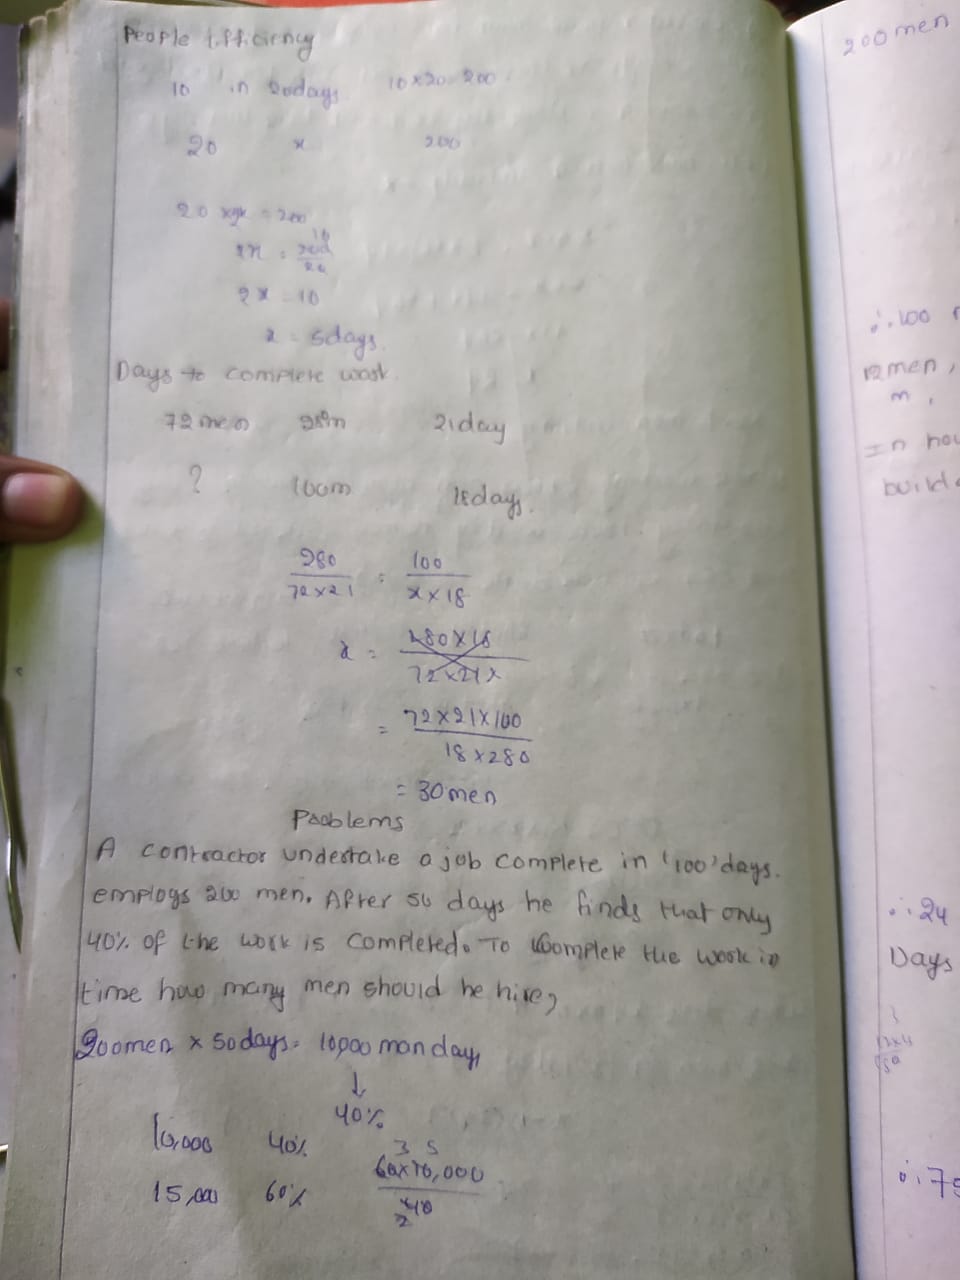 People Efficiency
10 in 20days 10×20=200
20 x 200
20 × = 200
2x = 200/20 10
2x = 10
x = 5days
Days to complete work.
72 men 280m 21day
? 100m 18days.
280/72×21 = 100/x×18
x = 280×18/72×21×
= 72×21×100/18×280
= 30men
Problems
A contractor undertake a job complete in '100' days.
employs 200 men. After 50 days he finds that only
40% of the work is completed. To complete the work in
time how many men should he hire,
200men × 50days = 10,000 man days
↓
40%
10,000 40% 3 5
15,000 60% 60×10,000/40
2
200men
∴ 100
12men,
m,
In hou
build
∴ 24
Days
∴ 79